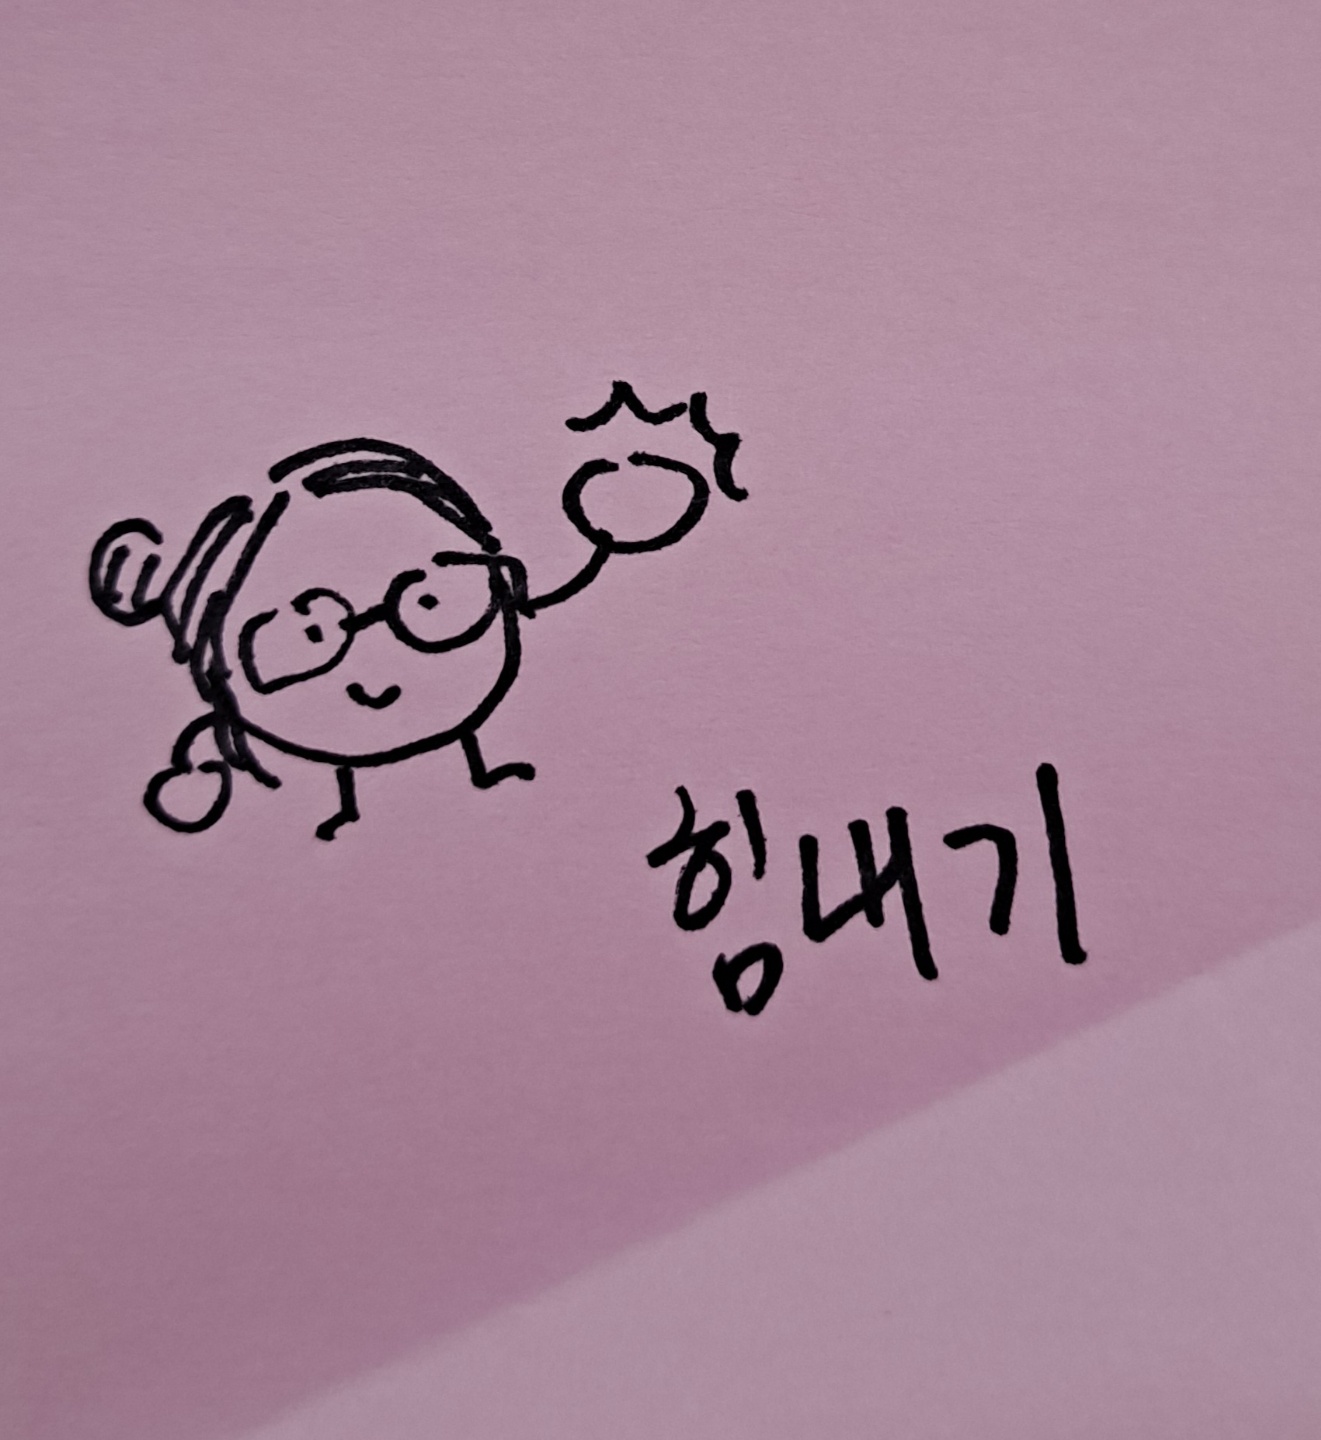 힘내기